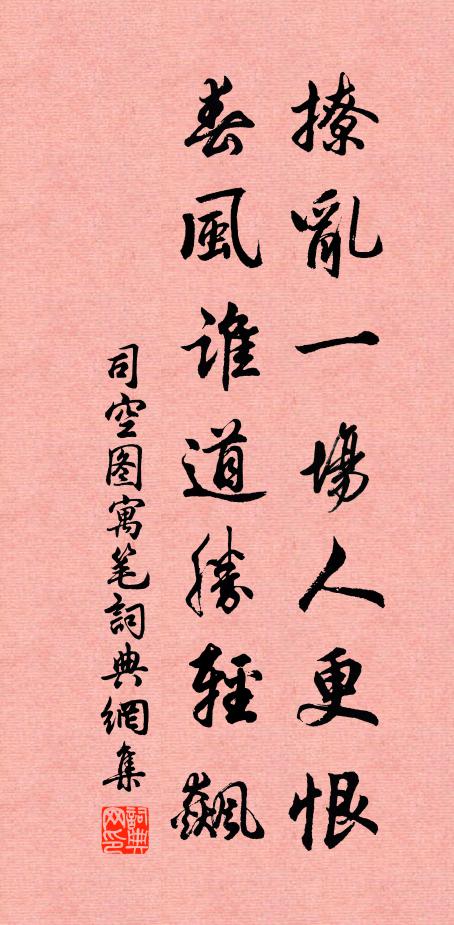 撩亂一場人更恨
春風誰道勝輕飆
司空图寓笔詞典網集
詞典网印